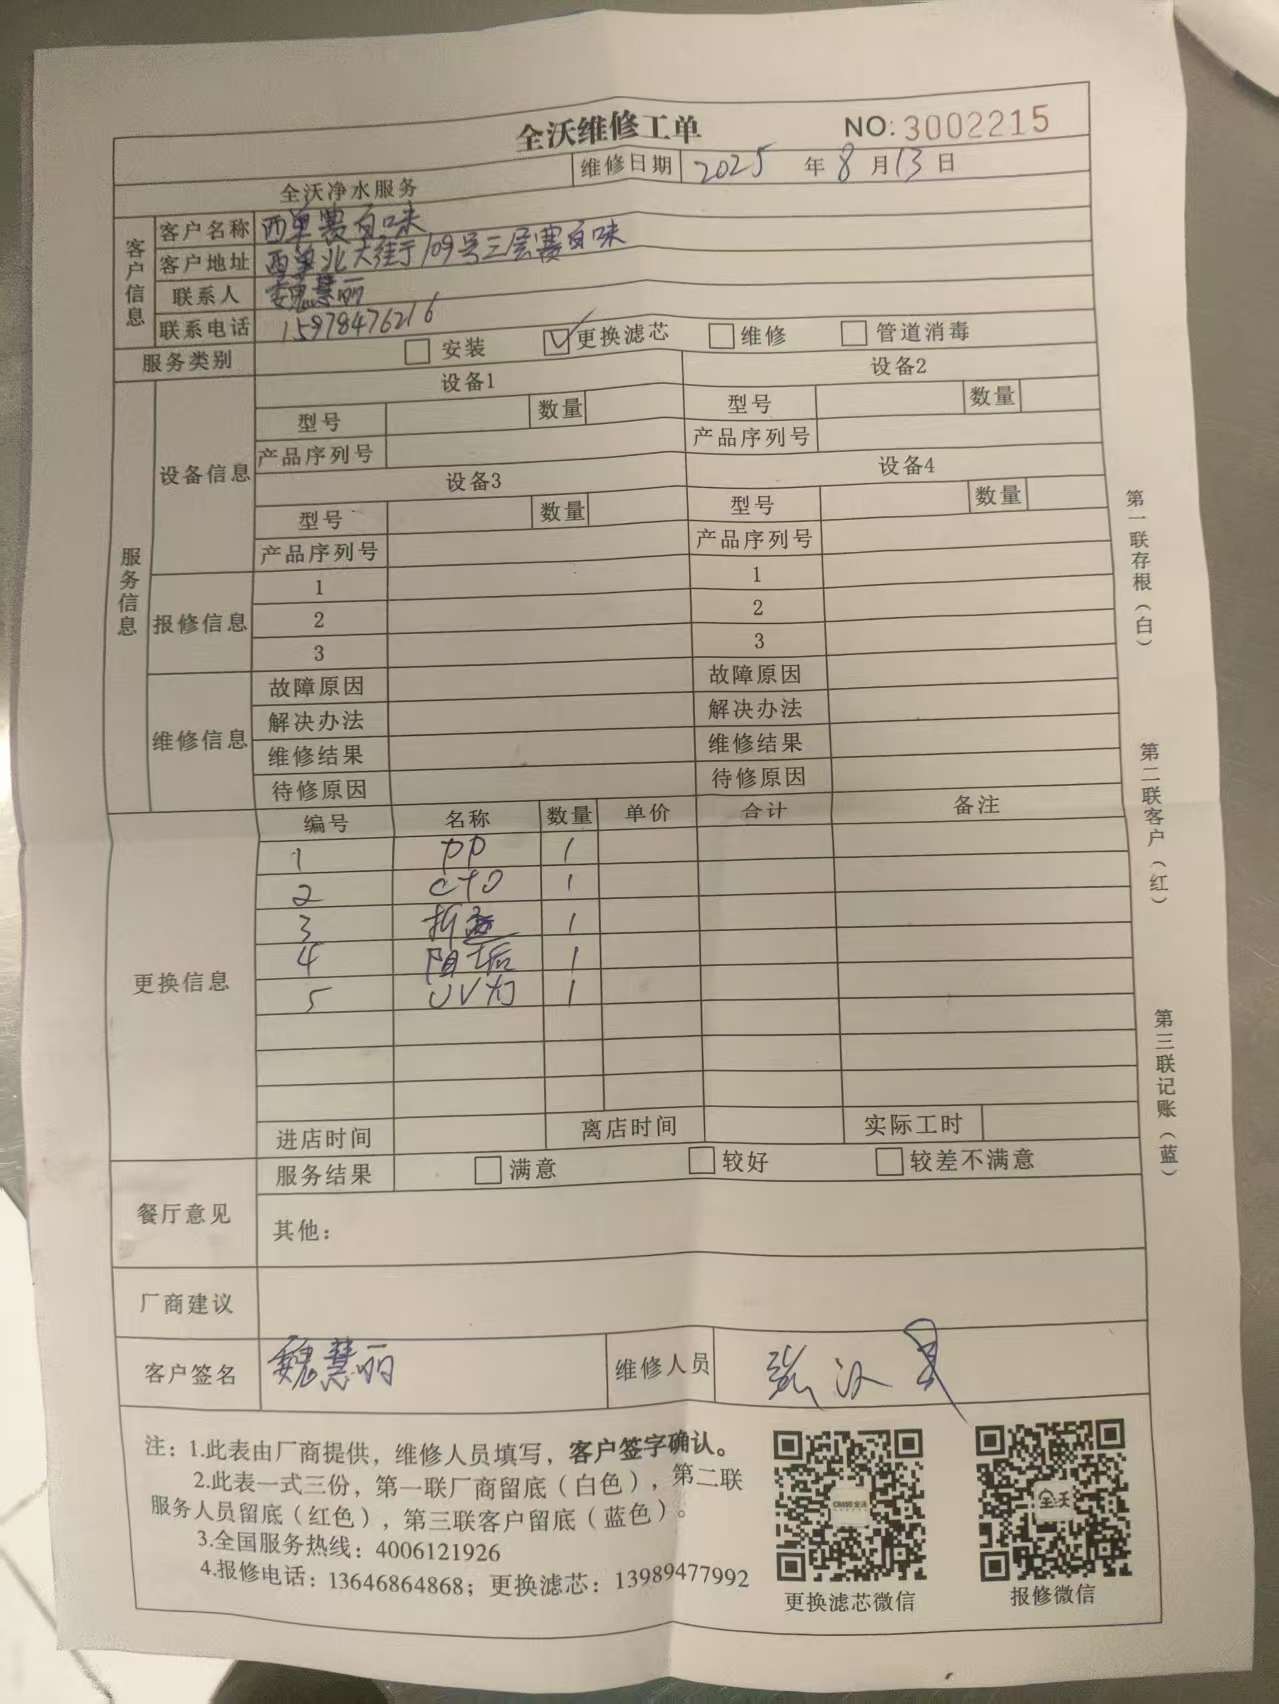 全沃维修工单 NO: 3002215
维修日期 2025 年 8 月 13 日
全沃净水服务
客户信息
客户名称 西单赛百味
客户地址 西单北大街109号三层赛百味
联系人 魏慧丽
联系电话 15978476216
服务类别 安装 更换滤芯 维修 管道消毒
服务信息
设备信息
设备1 设备2
型号 数量 型号 数量
产品序列号 产品序列号
设备3 设备4
型号 数量 型号 数量
产品序列号 产品序列号
报修信息
1 1
2 2
3 3
维修信息
故障原因 故障原因
解决办法 解决办法
维修结果 维修结果
待修原因 待修原因
更换信息
编号 名称 数量 单价 合计 备注
1 PP 1
2 CTO 1
3 折叠 1
4 阻垢 1
5 UV灯 1
进店时间 离店时间 实际工时
餐厅意见
服务结果 满意 较好 较差不满意
其他：
厂商建议
客户签名 魏慧丽 维修人员 张
注：1.此表由厂商提供，维修人员填写，客户签字确认。
2.此表一式三份，第一联厂商留底（白色），第二联
服务人员留底（红色），第三联客户留底（蓝色）。
3.全国服务热线：4006121926
4.报修电话：13646864868；更换滤芯：13989477992
更换滤芯微信 报修微信
全沃
第一联存根（白）
第二联客户（红）
第三联记账（蓝）